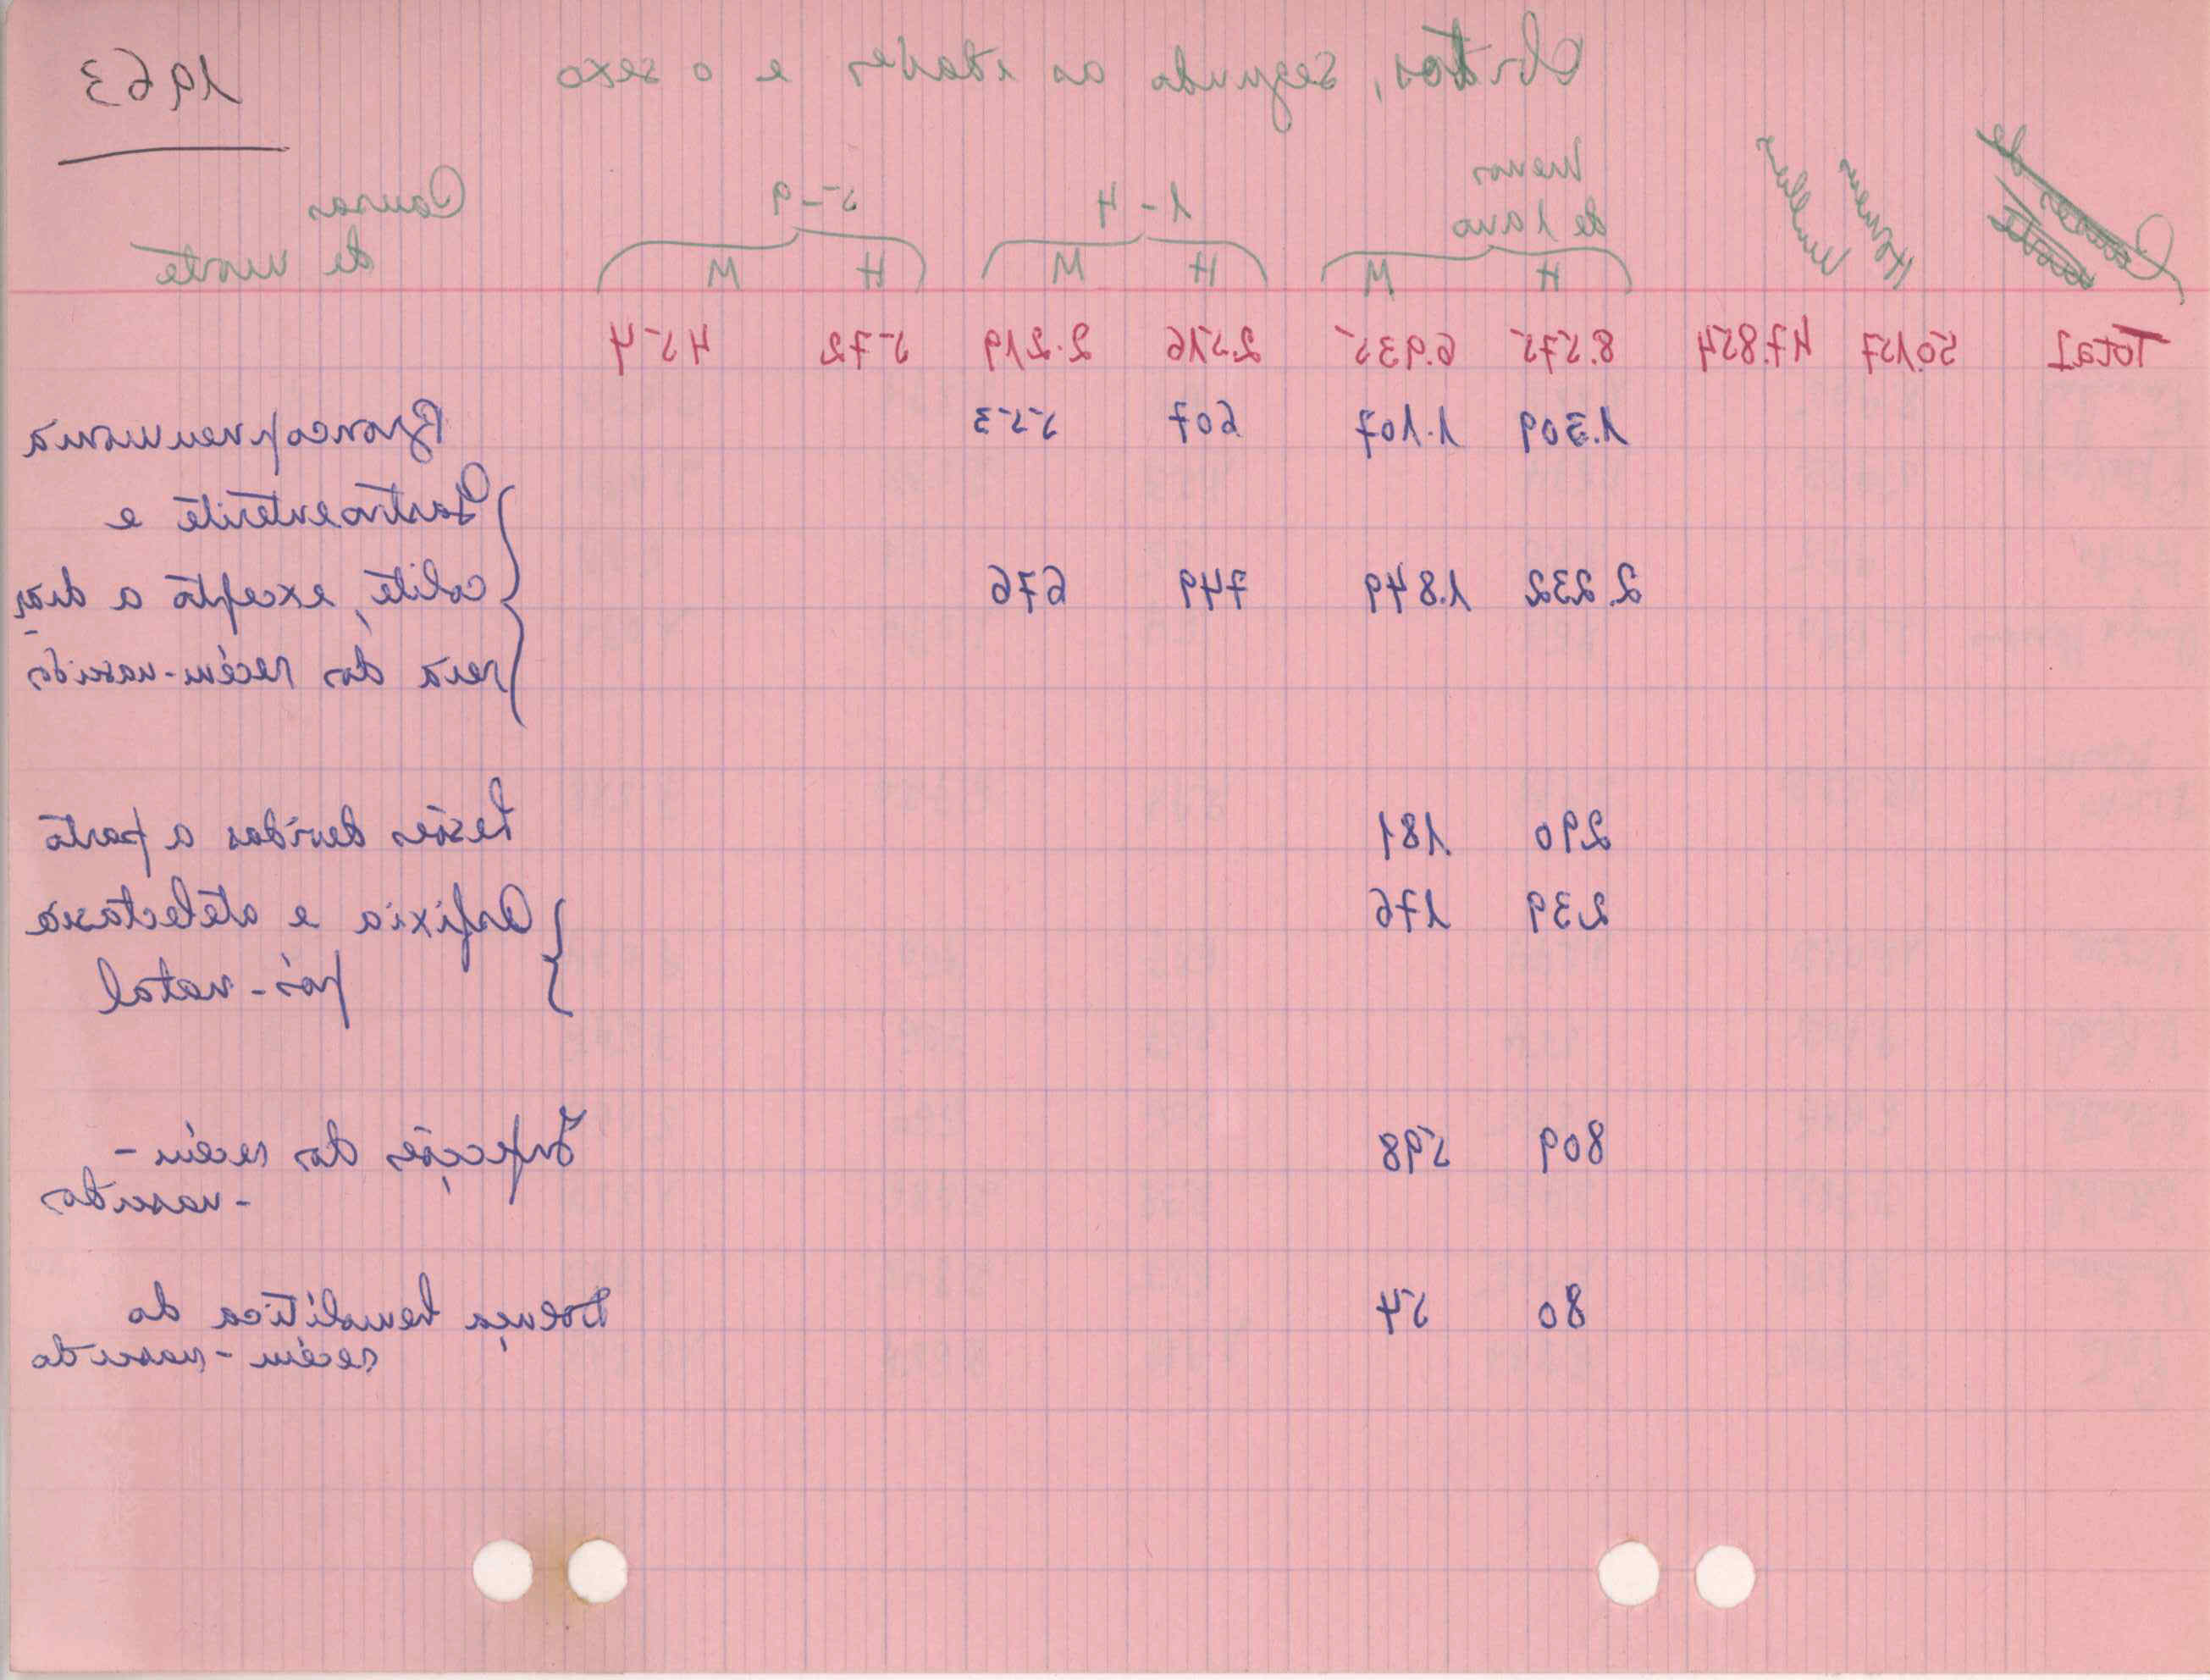 Óbitos, segundo as idades e o sexo 1963
Causas de
morte
Homens
Mulheres
Menos
de 1 ano
1-4
5-9
Causas
de morte
H M H M H M
Total 50.157 47.854 8.575 6.935 2.516 2.219 572 454
1.309 1.107 607 553 Broncopneumonia
Gastroenterite e
2.232 1.849 749 676 colite, excepto a diar-
reia dos recém-nascidos
290 181 Lesões devidas a parto
239 176 Asfixia e atelectasia
pós-natal
809 598 Infecções dos recém-
-nascidos
80 54 Doença hemolítica do
recém-nascido